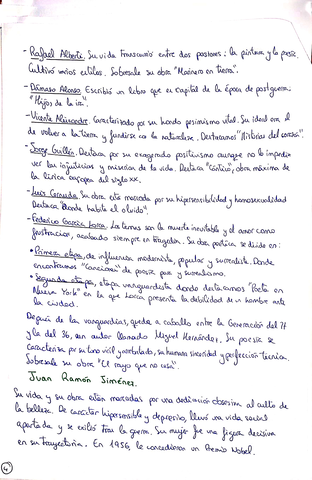 - Rafael Alberti. Su vida transcurrió entre dos pasiones: la pintura y la poesía.
Cultivó varios estilos. Sobresale su obra "Marinero en tierra".
- Dámaso Alonso. Escribió un libro que es capital de la época de postguerra:
"Hijos de la ira".
- Vicente Aleixandre. Caracterizado por su hondo pesimismo vital. Su ideal era el
de volver a la tierra y fundirse con la naturaleza. Destacamos "Historias del corazón".
- Jorge Guillén. Destaca por su exagerado positivismo aunque no le impedía
ver las injusticias y miserias de la vida. Destaca "Cántico", obra máxima de
la lírica española del siglo XX.
- Luis Cernuda. Su obra está marcada por su hipersensibilidad y homosexualidad
Destaca "Donde habite el olvido".
- Federico García Lorca. Los temas son la muerte inevitable y el amor como
frustración, acabando siempre en tragedia. Su obra poética se divide en:
• Primera etapa, de influencia modernista, popular y surrealista. Donde
encontramos "Canciones" de poesía pura y surrealismo.
• Segunda etapa, etapa vanguardista donde destacamos "Poeta en
Nueva York" en la que Lorca presenta la debilidad de un hombre ante
la ciudad.
Después de las vanguardias, queda a caballo entre la Generación del 27
y la del 36, un autor llamado Miguel Hernández. Su poesía se
caracteriza por su tono viril y arrebatado, su humana sinceridad y perfección técnica.
Sobresale su obra "El rayo que no cesa".
Juan Ramón Jiménez.
Su vida y su obra están marcadas por una dedicación obsesiva al culto de
la belleza. De carácter hipersensible y depresivo, llevó una vida social
apartada y se exilió tras la guerra. Su mujer fue una figura decisiva
en su trayectoria. En 1956, le concedieron un Premio Nobel.
4